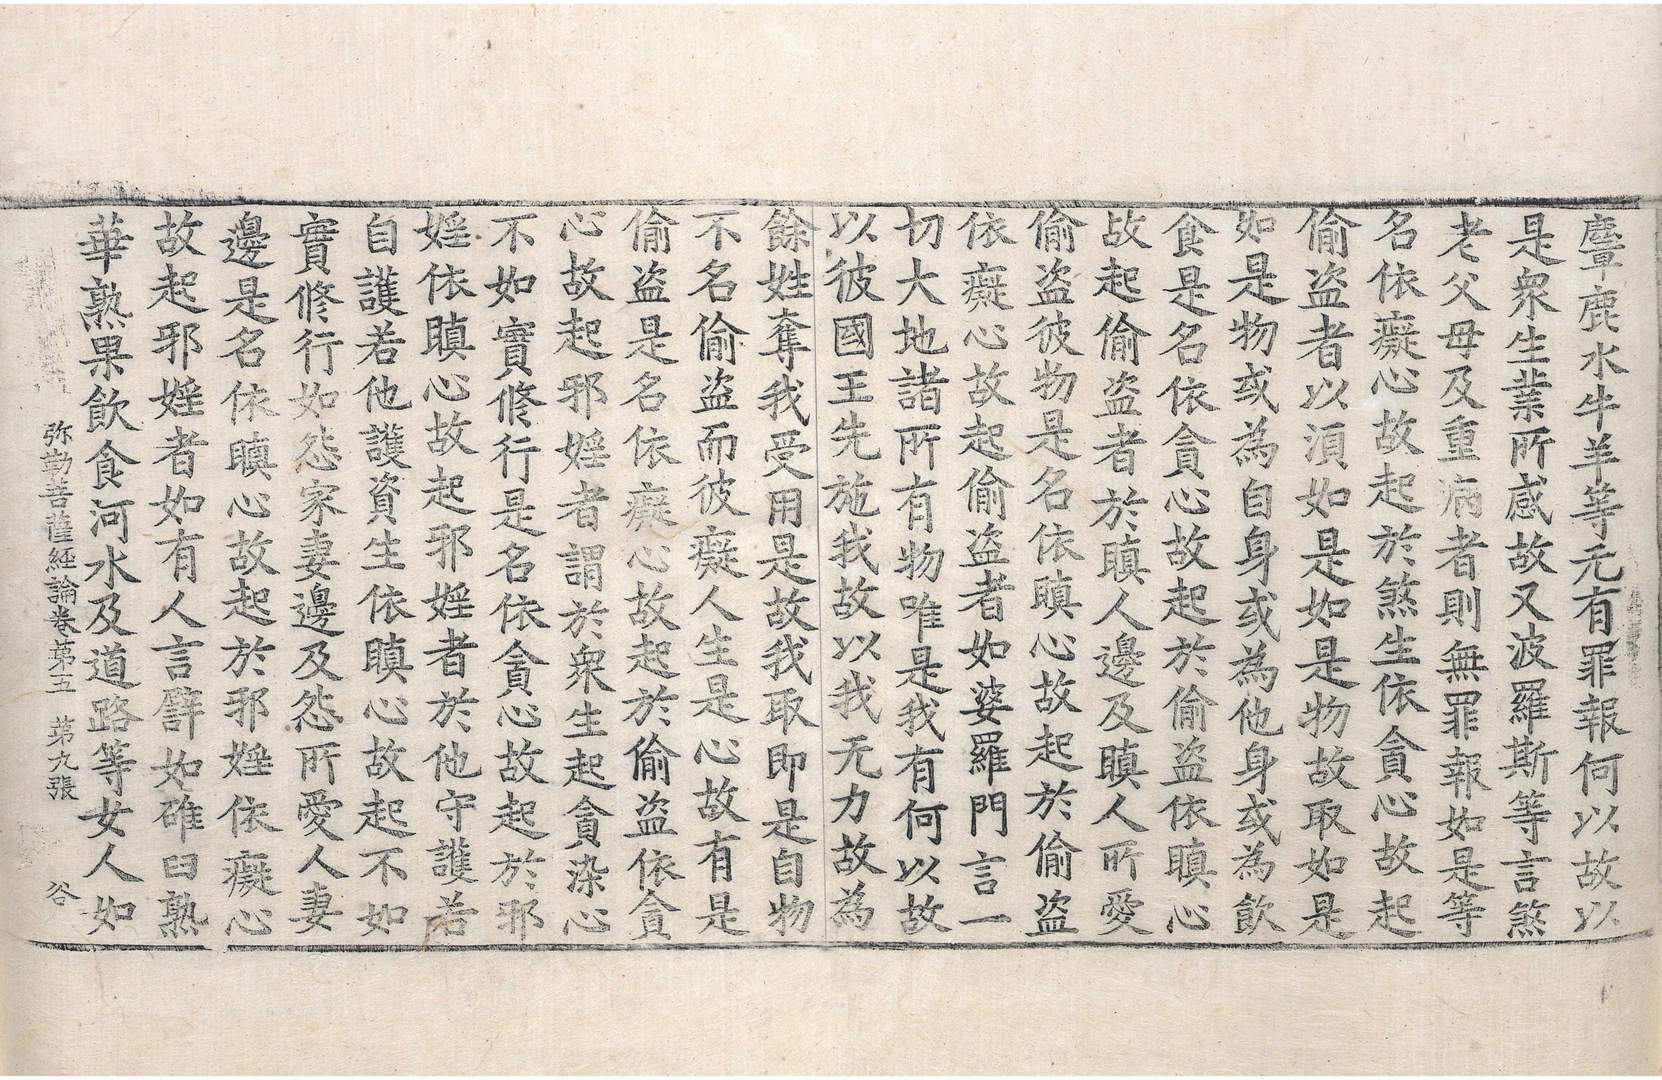 麞鹿水牛羊等无有罪報何以故以
是衆生業所感故又波羅斯等言煞
老父母及重病者則無罪報如是等
名依癡心故起於煞生依貪心故起
偷盜者以湏如是如是物故取如是
如是物或為自身或為他身或為飲
食是名依貪心故起於偷盜依瞋心
故起偷盜者於瞋人邊及瞋人所愛
偷盜彼物是名依瞋心故起於偷盜
依癡心故起偷盜者如婆羅門言一
切大地諸所有物唯是我有何以故
以彼國王先施我故以我无力故為
餘姓奪我受用是故我取即是自物
不名偷盜而彼癡人生是心故有是
偷盜是名依癡心故起於偷盜依貪
心故起邪婬者謂於衆生起貪染心
不如實修行是名依貪心故起於邪
婬依瞋心故起邪婬者於他守護若
自護若他護資生依瞋心故起不如
實修行如怨家妻邊及怨所愛人妻
邊是名依瞋心故起於邪婬依癡心
故起邪婬者如有人言譬如碓臼熟
華熟果飲食河水及道路等女人如
弥勒菩薩經論卷第五 第九張 谷